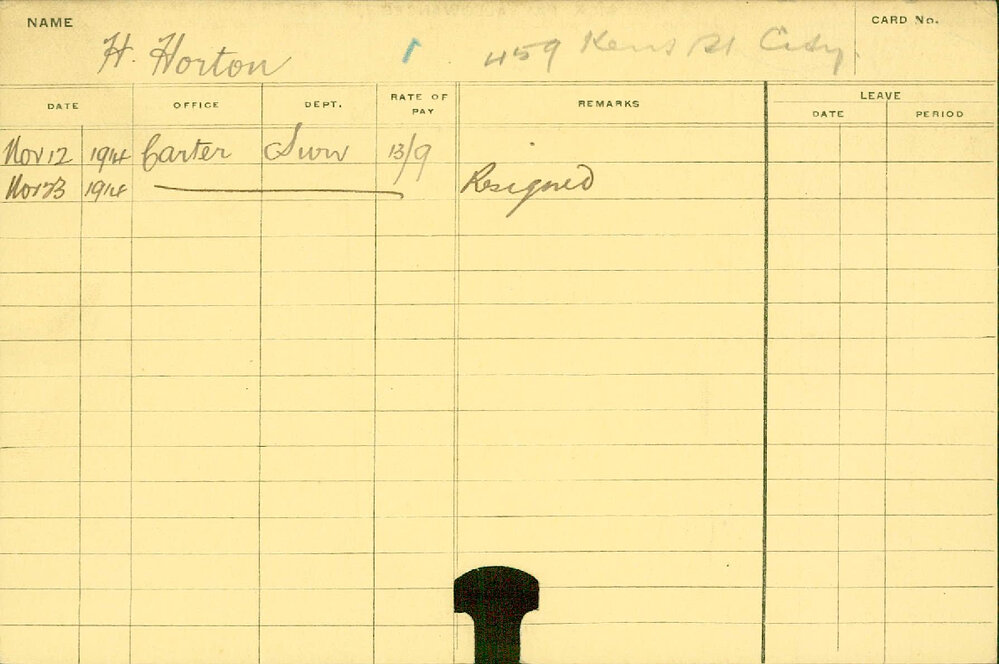 NAME
CARD No.
H. Horton 1 459 Kent St City
DATE OFFICE DEPT. RATE OF PAY REMARKS LEAVE
DATE PERIOD
Nov 12 1914 Carter Surv 13/9
Nov 23 1914 Resigned